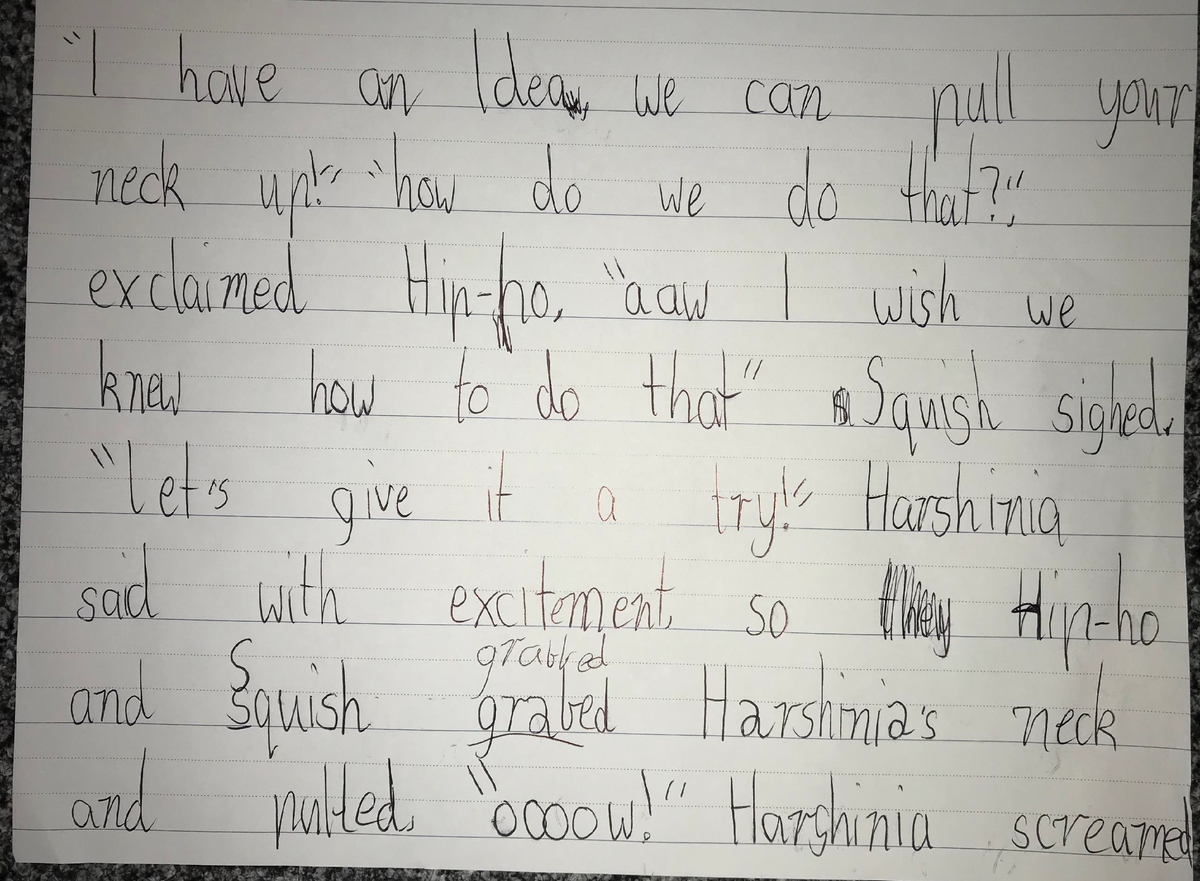 "I have an Idea, we can pull your
neck up!" "how do we do that?",
exclaimed Hip-ho, "aaw I wish we
knew how to do that" Squish sighed,
"let's give it a try!" Harshinia
said with excitement, so Hip-ho
grabbed
and Squish grabed Harshinia's neck
and pulled, "oooow!" Harshinia screamed